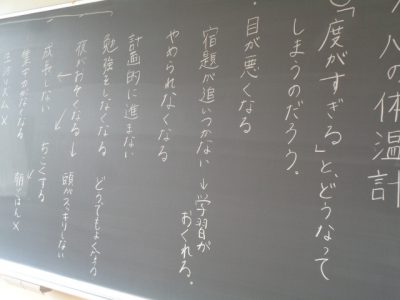 ハの体温計
○「度がすぎる」と、どうなって
しまうのだろう。
・目が悪くなる
宿題が追いつかない→学習が
おくれる。
やめられなくなる
計画的に進まない
勉強をしなくなる どうでもよくなる
夜がおそくなる→頭がスッキリしない
成長しない ちこくする
集中力がなくなる 朝ごはん×
生活リズム×